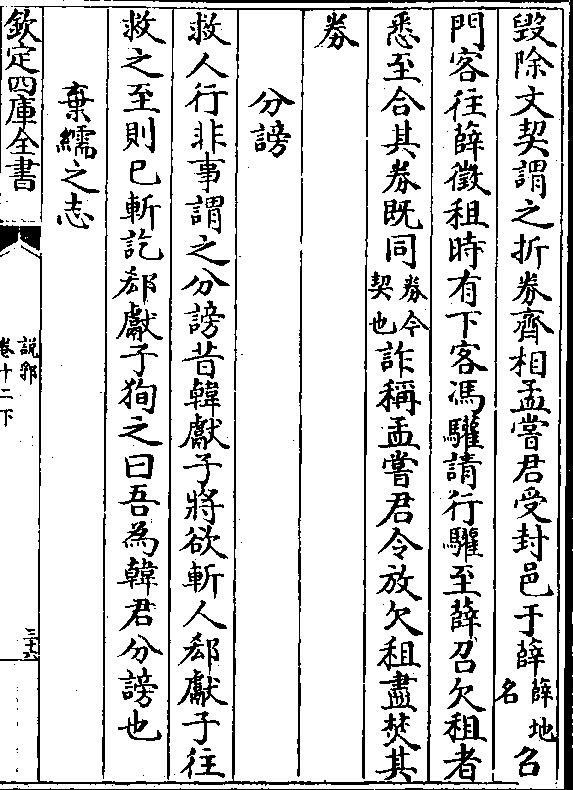 毀除文契謂之折券齊相孟嘗君受封邑于薛薛地名召
門客徃薛徵租時有下客馮驩請行驩至薛召欠租者
悉至合其券既同券今契也詐稱孟嘗君令放欠租盡焚其
券
分謗
救人行非事謂之分謗昔韓獻子將欲斬人郄獻子徃
救之至則已斬訖郄獻子狥之曰吾為韓君分謗也
棄繻之志
欽定四庫全書
說郛
卷十二下
三十六